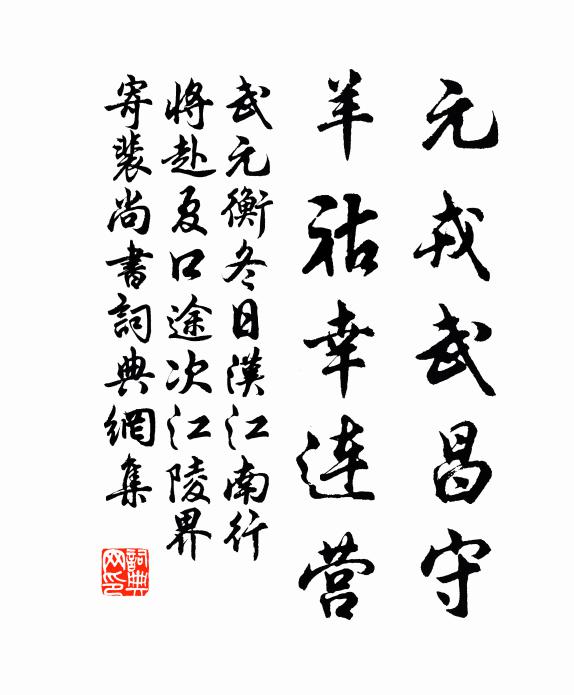 元戎武昌守
羊祜幸連营
武元衡冬日漢江南行
將赴夏口途次江陵界
寄裴尚書詞典網集
詞典
网印